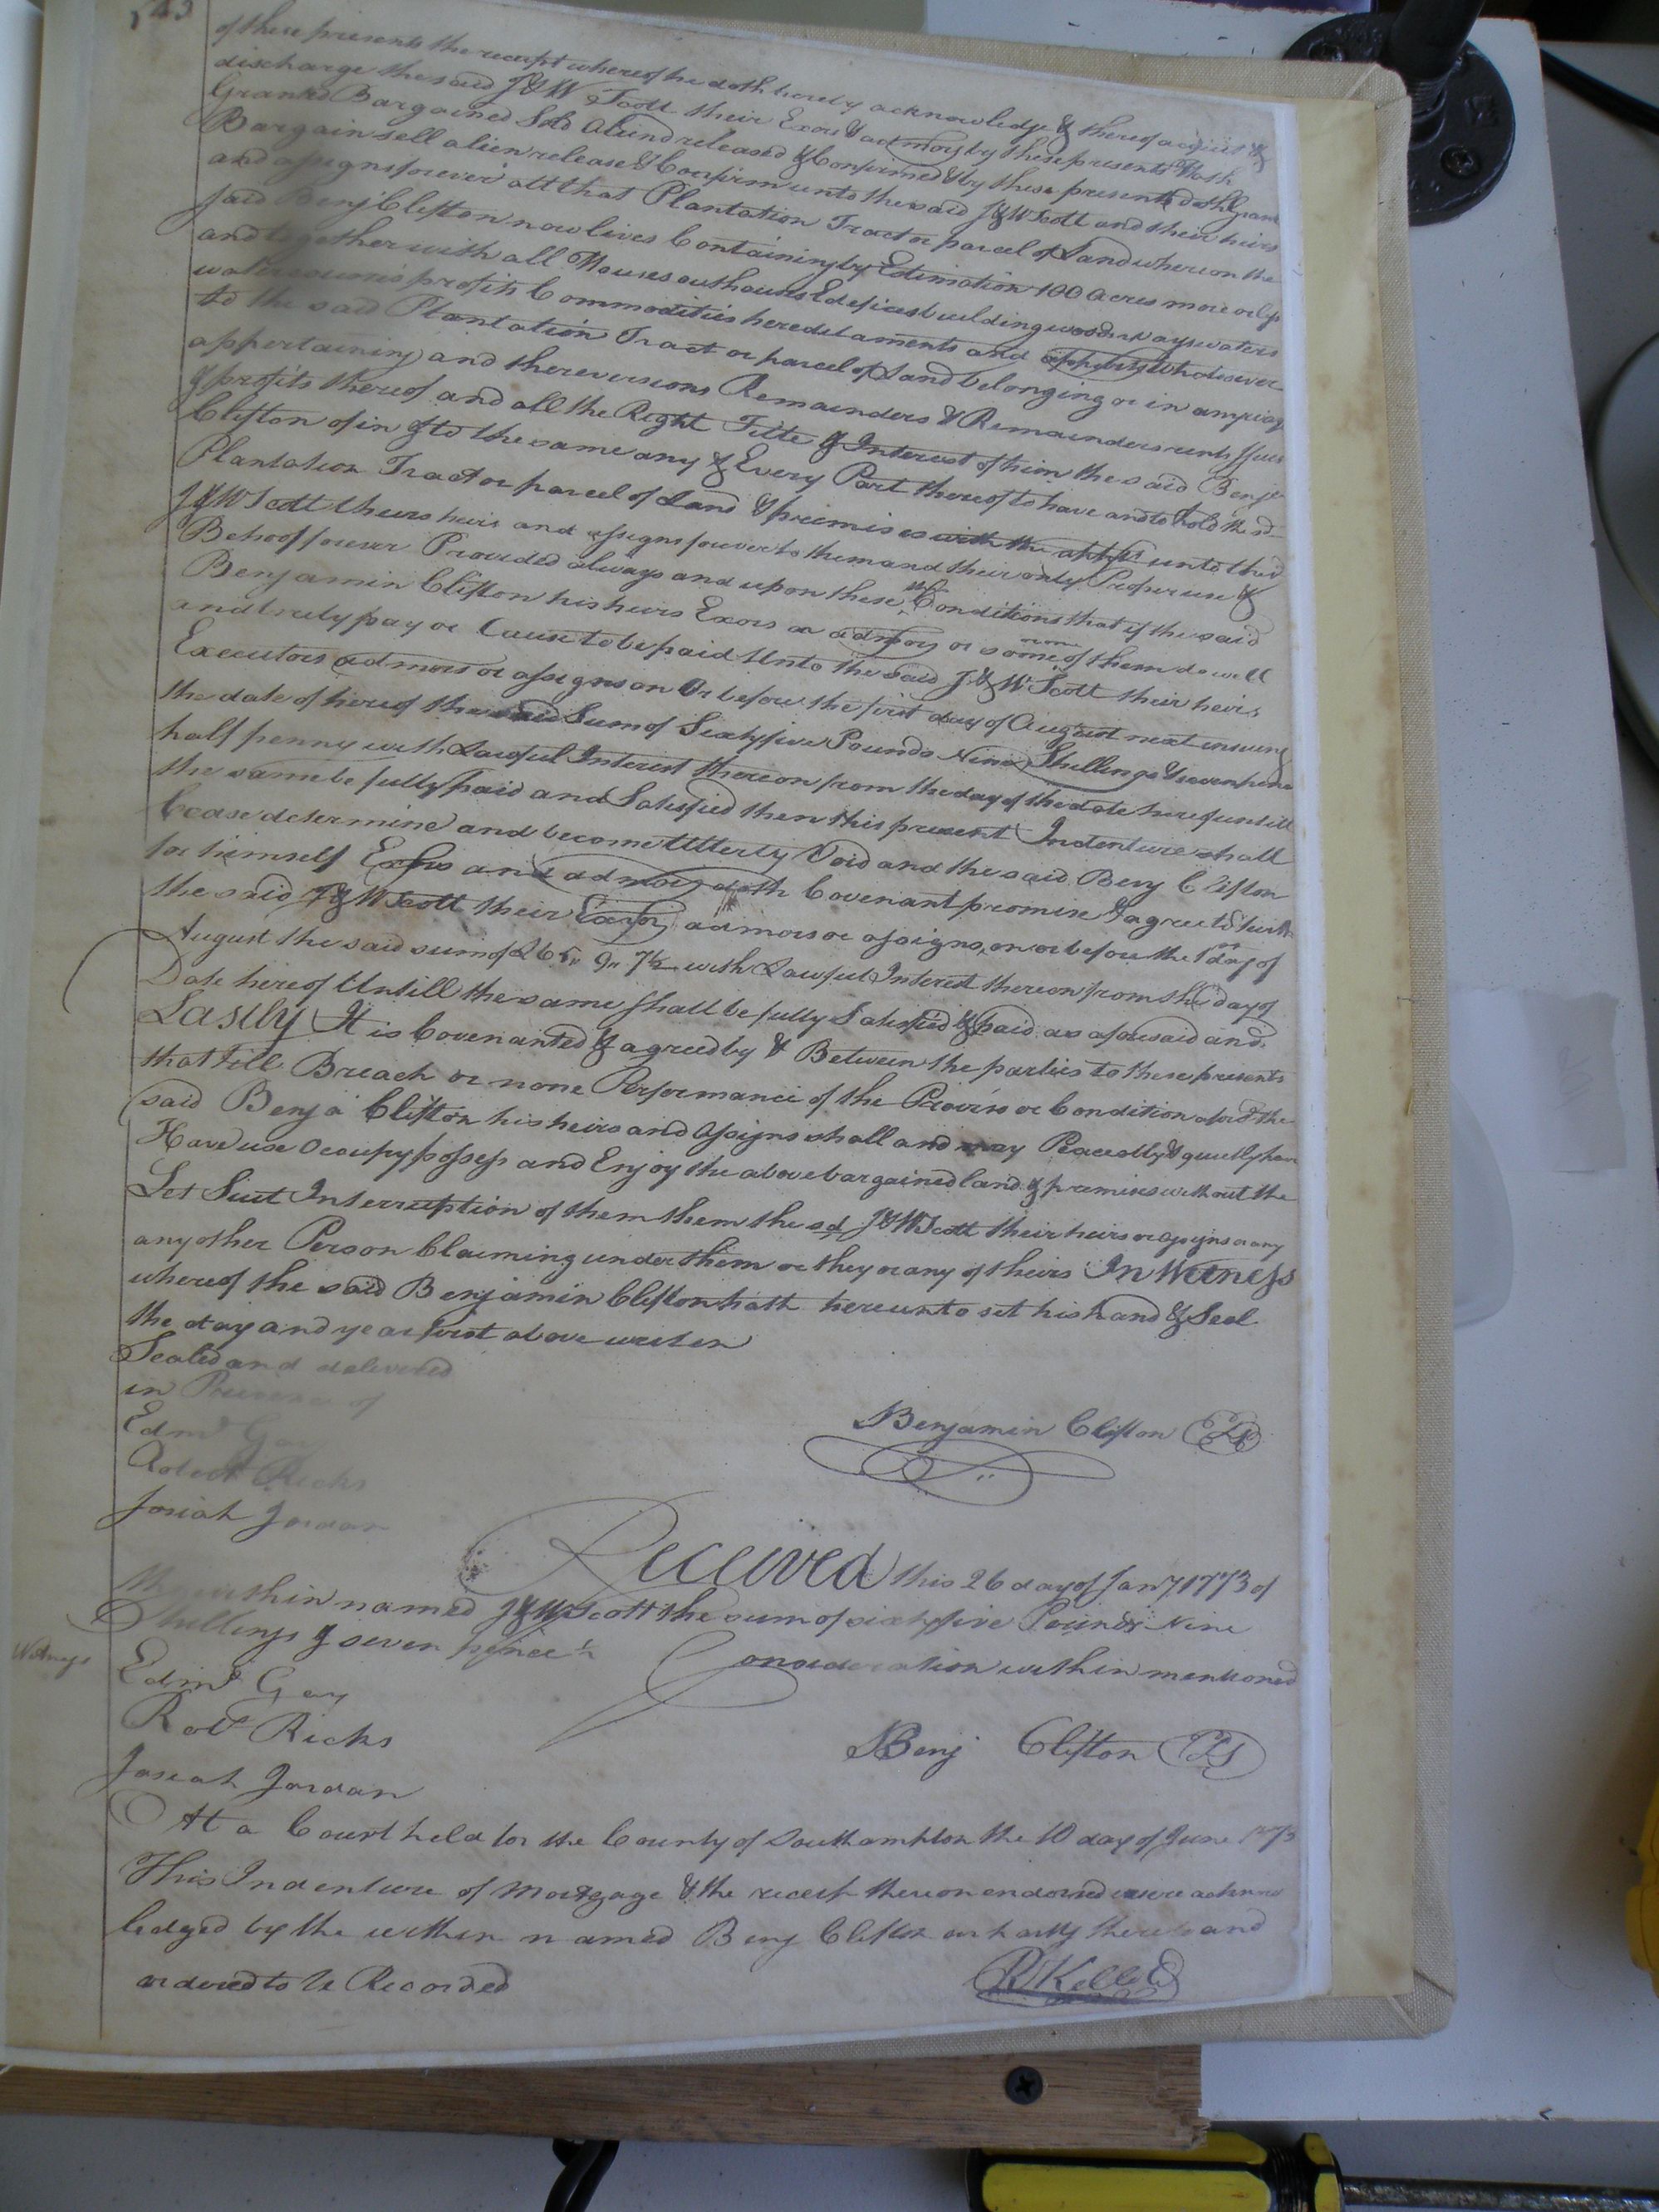 543
of these presents the receipt whereof he doth hereby acknowledge & thereof acquit &
discharge the said J & W Scott their Exors & admors by these presents Hath
Granted Bargained Sold aliend released & Confirmed & by these presents doth Grant
Bargain sell alien release & Confirm unto the said J & W Scott and their heirs
and assigns forever all that Plantation Tract or parcel of Land whereon the
said Benj Clifton now lives Containing by Estimation 100 acres more or less
and together with all Houses outhouses Edefices buildings woods ways waters
watercourses profits Commodities hereditaments and whatsoever
to the said Plantation Tract or parcel of Land belonging or in any wise
appertaining and the reversions Remainders & Remainders rents Issues
& profits thereof and all the Right Title & Interest of him the said Benja
Clifton of in & to the same any & Every Part thereof to have and to hold the sd
Plantation Tract or parcel of Land & premises with the unto the sd
J & W Scott theirs heirs and assigns forever to them and their only Proper use &
Behoof forever Provided always and upon these Conditions that if the said
Benjamin Clifton his heirs Exors or admors or some of them do well
and truly pay or Cause to be paid Unto the said J & W Scott their heirs
Executors admors or assigns on Or before the first day of August next ensuing
the date of hereof the said Sum of Sixty five Pounds Nine Shillings & seven pence
half penny with Lawful Interest thereon from the day of the date hereof untill
the same be fully paid and Satisfied then this present Indenture shall
Cease determine and become Utterly Void and the said Benj Clifton
for himself and admors doth Covenant promise & agree to & with
the said J & W Scott their admors or assigns, on or before the 1st day of
August the said sum of £65,, 9,, 7½ with Lawful Interest thereon from the day of
Date hereof Untill the same shall be fully Satisfied & paid as aforesaid and
Lastly It is Covenanted & agreed by & Between the parties to these presents
that till Breach or none Performance of the Proviso or Condition aforsd the
said Benja Clifton his heirs and assigns shall and may Peacedly & quietly have
Have use occupy possess and Enjoy the above bargained land & premises without the
Let Suit Interruption of them them the sd J & W Scott their heirs or assigns or any
any other Person Claiming under them or they or any of theirs In Witness
whereof the said Benjamin Clifton hath hereunto set his hand & Seal
the day and year first above writen
Sealed and delivered
in Presence of
Benjamin Clifton LS
Edmd Gay
Robert Ricks
Josiah Jordan
Received this 26 day of Jany 1773 of
the within named J & W Scott the sum of sixty five Pounds Nine
Shillings & seven pence ½ Consideration within mentioned
Witness
Edmd Gay
Robt Ricks
Benj Clifton LS
Josiah Jordan
At a Court held for the County of Southampton the 10 day of June 1773
This Indenture of Mortgage & the receipt thereon endorsed were acknow
ledged by the within named Benj Clifton party thereto and
ordered to be Recorded